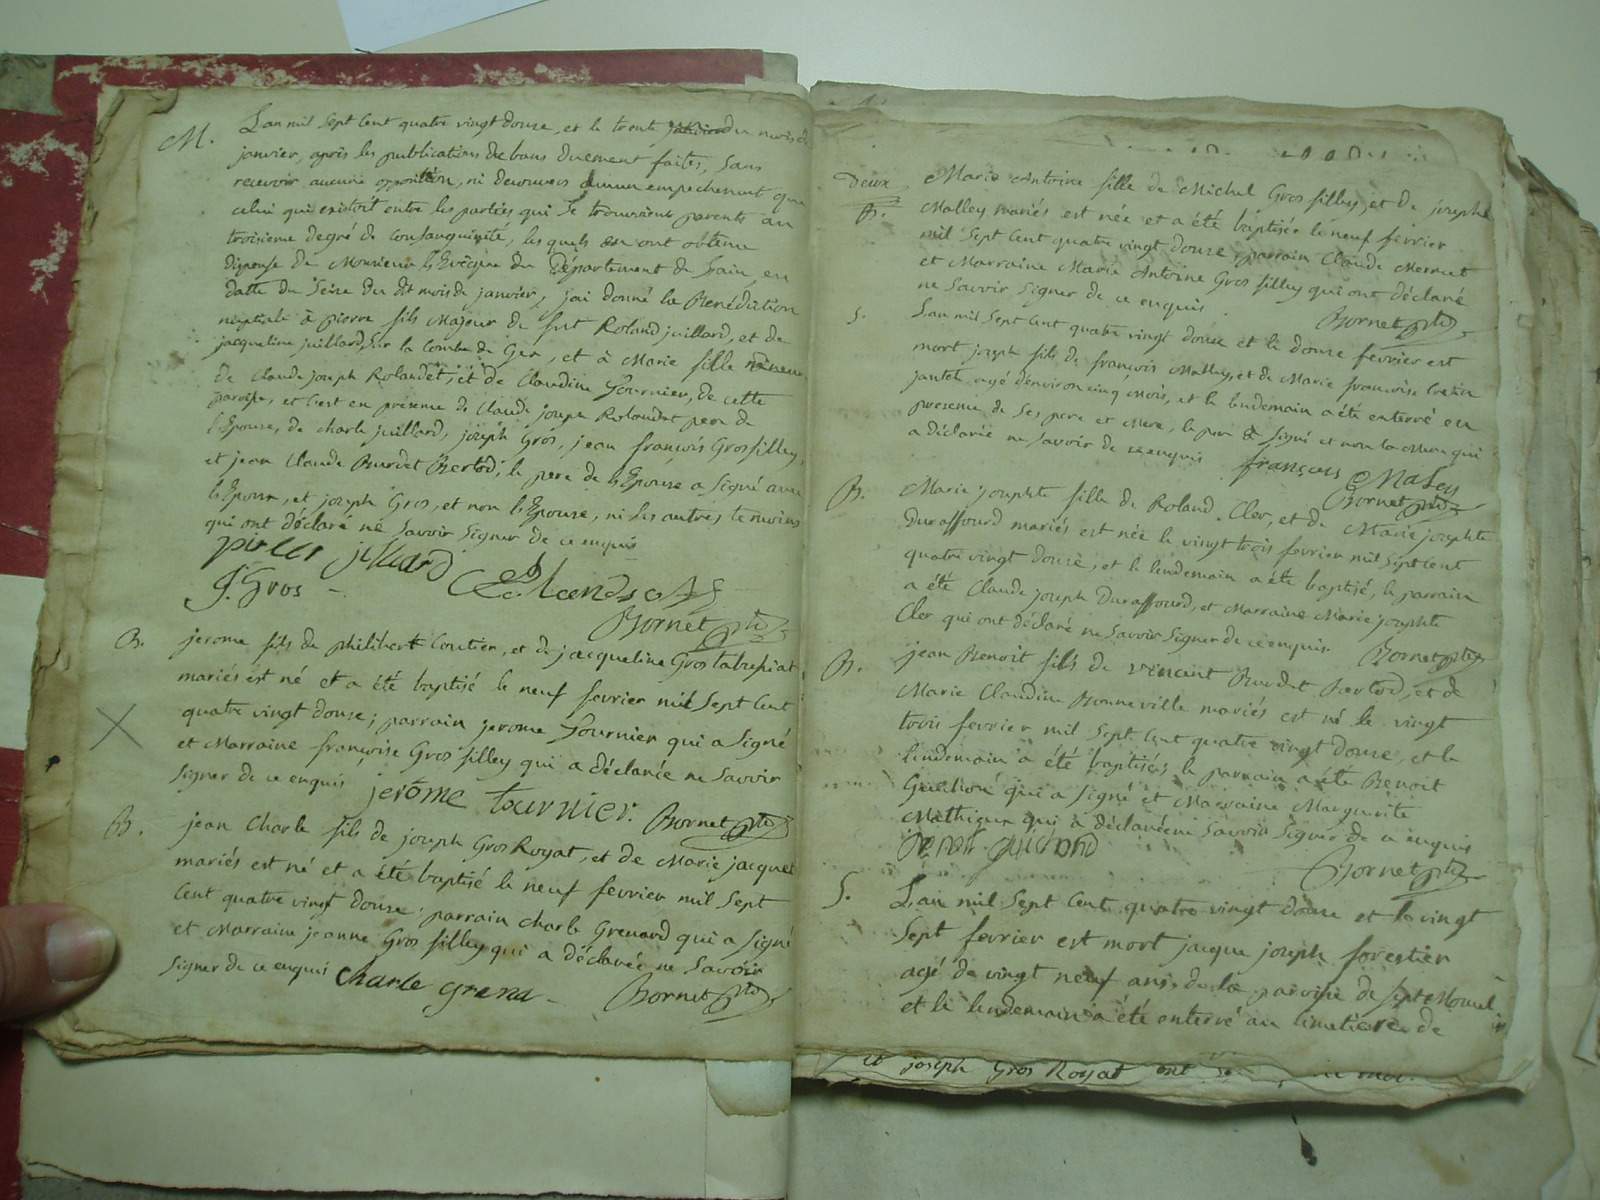 M. L'an mil sept cent quatre vingt douse, et le trente du mois de
janvier, après les publications de bans duement faites, sans
recevoir aucune opposition, ni decouvers aucun empechement que
celui qui existoit entre les parties qui se trouvoient parents au
troisieme degré de consanguinité, les quels en ont obtenu
dispense de Monsieur l'Evêque du Département de l'ain, en
datte du seise du dit mois de janvier, j'ai donné la Benédiction
nuptiale à pierre fils Majeur de fut Roland juillard, et de
jacqueline juillard, sur la Combe de Gex, et à Marie fille mineure
de Claude joseph Rolandet, et de Claudine fournier, de cette
paroisse, et c'est en présence de Claude joseph Rolandet pere de
l'Epouse, de charle juillard, joseph Gros, jean françois Grosfilley,
et jean Claude Burdet Bertod; le pere de l'Epouse a signé avec
l'Epoux, et joseph Gros, et non l'Epouse, ni les autres temoins
qui ont déclaré ne savoir signer de ce enquis
J. Gros
Bornet ptre
B. jerome fils de philibert Coutier, et de jacqueline Gros
mariés est né et a été baptisé le neuf fevrier mil sept cent
quatre vingt douse; parrain jerome fournier qui a signé
et Marraine françoise Gros filley qui a déclarée ne savoir
signer de ce enquis jerome tournier. Bornet ptre
B. jean charle fils de joseph Gros Royat, et de Marie jacquet
mariés est né et a été baptisé le neuf fevrier mil sept
cent quatre vingt douse; parrain charle Grenard qui a signé
et Marraine jeanne Gros filley qui a déclarée ne savoir
signer de ce enquis charle grena Bornet ptre
Deux Marie Antoine fille de Michel Gros filley, et de josephe
B. Malley mariés est née et a été baptisée le neuf fevrier
mil sept cent quatre vingt douse, parrain Claude Mermet
et Marraine Marie Antoine Gros filley qui ont déclaré
ne savoir signer de ce enquis. Bornet ptre
S. L'an mil sept cent quatre vingt douse et le douse fevrier est
mort joseph fils de françois Malley, et de Marie françoise
agé d'environ cinq mois, et le lendemain a été enterré en
presence de ses pere et Mere, le pere a signé et non la Mere qui
a déclarée ne savoir de ce enquis françois Maley
Bornet ptre
B. Marie josephte fille de Roland Cler, et de Marie josephte
Duraffourd mariés est née le vingt trois fevrier mil sept cent
quatre vingt douse, et le lendemain a été baptisé, le parrain
a été Claude joseph Duraffourd, et Marraine Marie josephte
Cler qui ont déclaré ne savoir signer de ce enquis. Bornet ptre
B. jean Benoit fils de vincent Burdet Bertod, et de
Marie Claudine Bonneville mariés est né le vingt
trois fevrier mil sept cent quatre vingt douse, et le
lendemain a été baptisé, le parrain a été Benoit
qui a signé et Marraine Marguerite
Mathieux qui a déclarée ne savoir signer de ce enquis
Bornet ptre
S. L'an mil sept cent quatre vingt douse et le vingt
sept fevrier est mort jacque joseph forestier
agé de vingt neuf ans, de la paroisse de sept Moncel
et le lendemain a été enterré au cimetiere de
et joseph Gros Royat ont